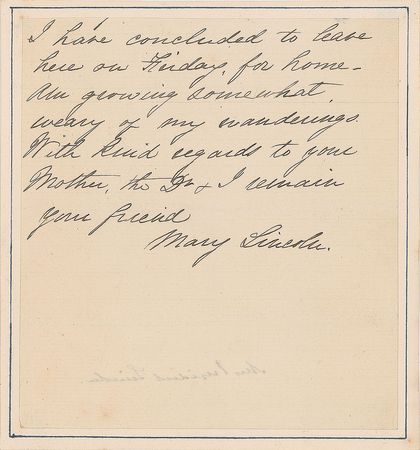 I have concluded to leave
here on Friday, for home -
Am growing somewhat
weary of my wanderings.
With kind regards to your
Mother, the Dr & I remain
your friend
Mary Lincoln.